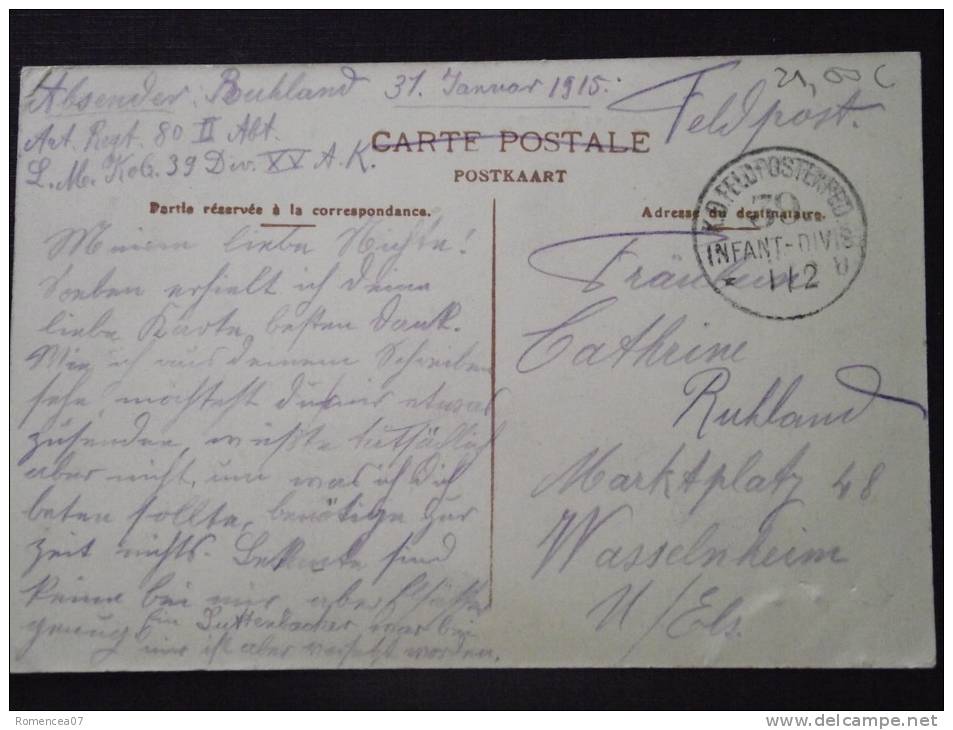 Absender: Ruhland 31. Januar 1915.
Art. Regt. 80 II Abt.
L. M. Kol. 39 Div. XV A. K.
21,00 €
Feldpost.
CARTE POSTALE
POSTKAART
Partie réservée à la correspondance.
Adresse du destinataire.
K.D. FELDPOSTEXPED
39
INFANT-DIVIS
1/2
Meine liebe Nichte!
Soeben erhielt ich deine
liebe Karte, besten Dank.
Wie ich aus deinem Schreiben
sehe, möchtest du mir etwas
zusenden, wüßte tatsächlich
aber nicht, um was ich Dich
beten sollte, benötige zur
Zeit nichts. Bekannte sind
keine bei mir aber Elsässer
genug. Ein Puttenbacher war bei
mir ist aber versetzt worden.
Fräulein
Cathrine
Ruhland
Marktplatz 48
Wasselnheim
U/Els.
Romencea07
www.delcampe.net